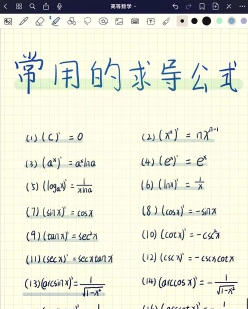 高等数学
常用的求导公式
(1) (C)' = 0
(2) (x^n)' = nx^{n-1}
(3) (a^x)' = a^x lna
(4) (e^x)' = e^x
(5) (log_a x)' = 1/(xlna)
(6) (lnx)' = 1/x
(7) (sinx)' = cosx
(8) (cosx)' = -sinx
(9) (tanx)' = sec²x
(10) (cotx)' = -csc²x
(11) (secx)' = secxtanx
(12) (cscx)' = -cscxcotx
(13) (arcsinx)' = 1/√(1-x²)
(14) (arccosx)' = -1/√(1-x²)